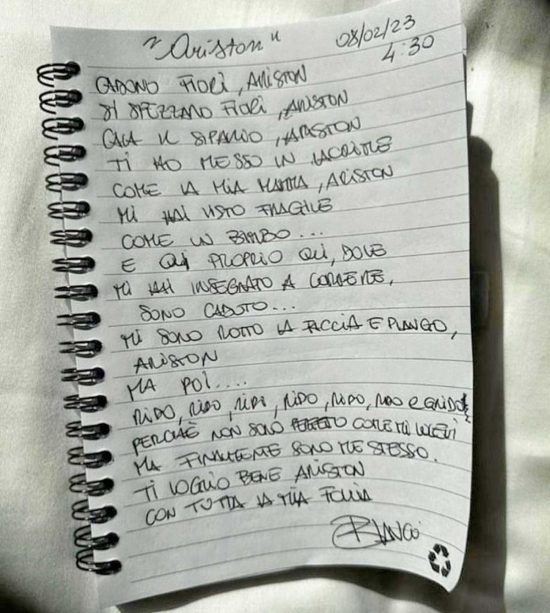 "Ariston"
08/02/23
4:30
CADONO FIORI, ARISTON
SI SPEZZANO FIORI, ARISTON
CALA IL SIPARIO, ARISTON
TI HO MESSO IN LACRIME
COME LA MIA MAMMA, ARISTON
MI HAI VISTO FRAGILE
COME UN BIMBO...
E QUI PROPRIO QUI, DOVE
MI HAI INSEGNATO A CORRERE,
SONO CADUTO...
MI SONO ROTTO LA FACCIA E PIANGO,
ARISTON
MA POI....
RIDO, RIDO, RIDI, RIDO, RIDO, RIDO E GRIDO
PERCHÈ NON SONO COME MI VOLEVI
MA FINALMENTE SONO ME STESSO.
TI VOGLIO BENE ARISTON
CON TUTTA LA MIA FOLLIA